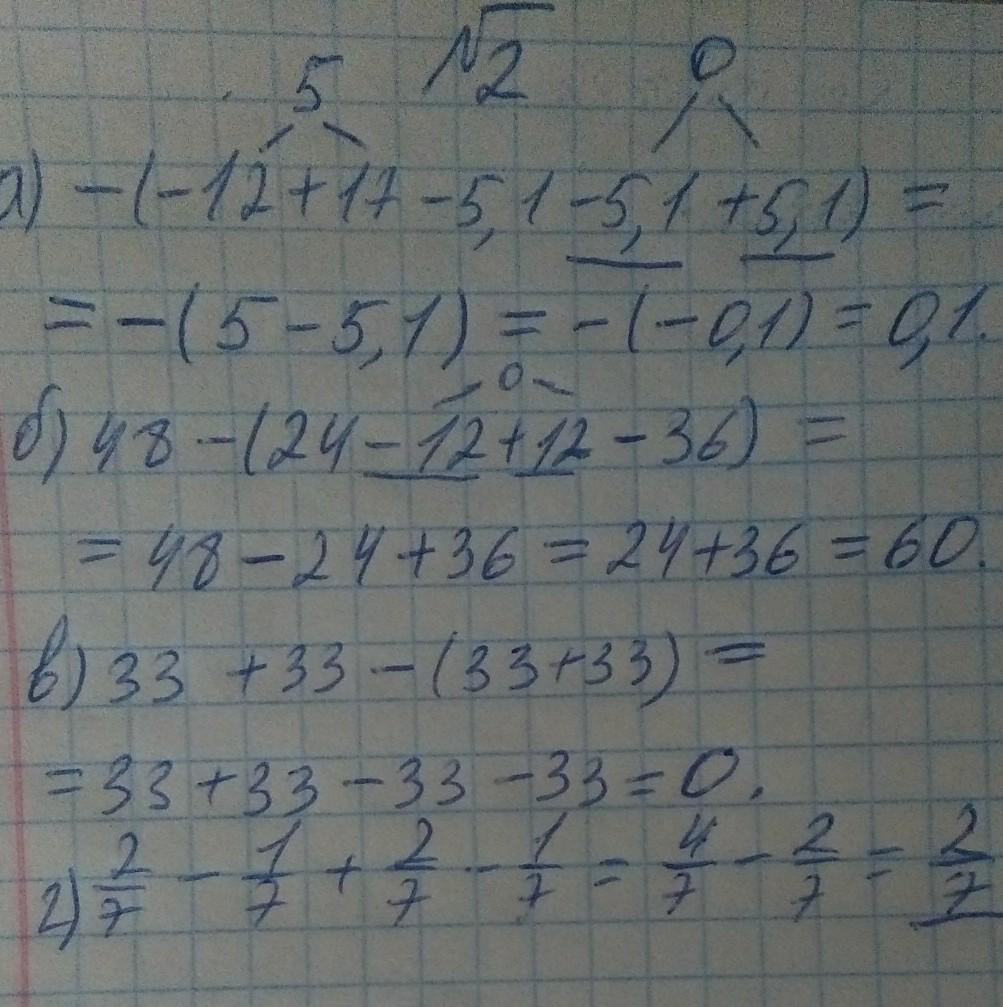 √2
5 0
а) -(-12+17-5,1-5,1+5,1)=
=-(5-5,1)=-(-0,1)=0,1.
0
б) 48-(24-12+12-36)=
=48-24+36=24+36=60.
в) 33+33-(33+33)=
=33+33-33-33=0.
г) 2/7 - 1/7 + 2/7 - 1/7 = 4/7 - 2/7 = 2/7